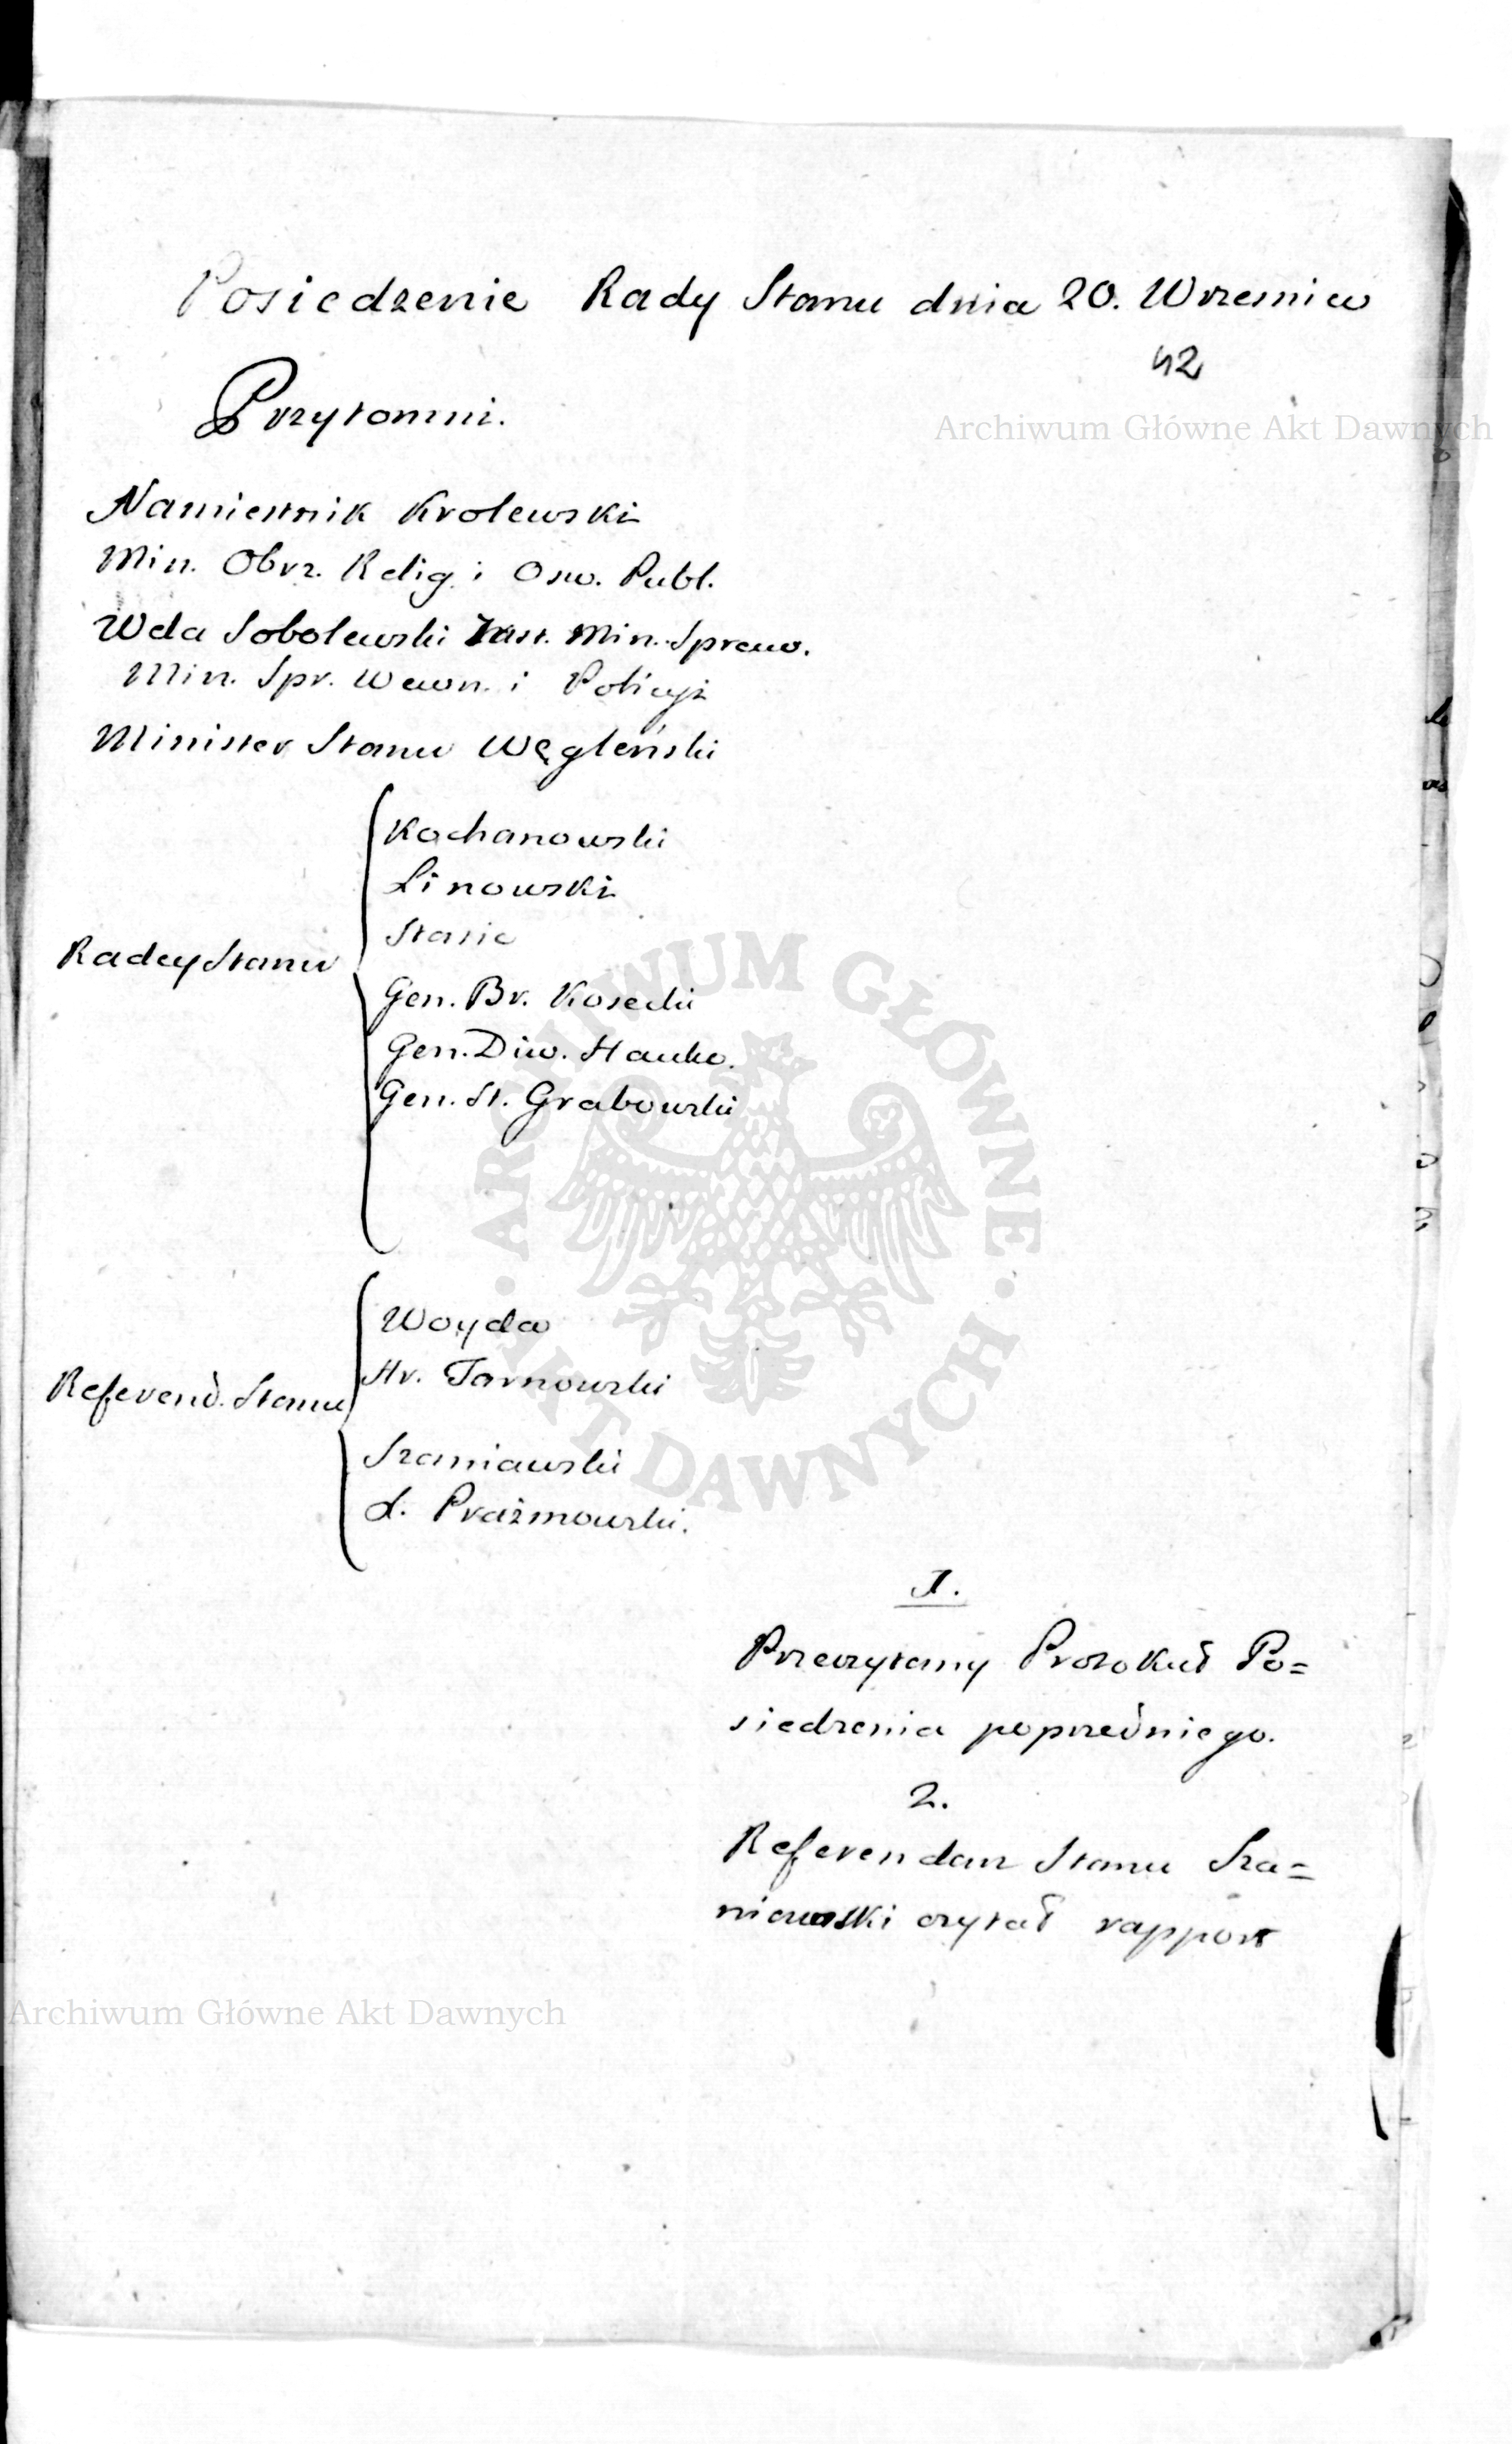 Posiedzenie Rady Stanu dnia 20. Wrzesnia
42
Przytomni.
Archiwum Główne Akt Dawnych
Namiestnik Krolewski
Min. Obrz. Relig. i Osw. Publ.
Wda Sobolewski Zast. Min. Spraw.
Min. Spr. Wewn. i Policyi
Minister Stanu Węgleński
Kochanowski
Linowski
Stasic
Radcy Stanu
Gen. Br. Kosecki
Gen. Diw. Hauke.
Gen. St. Grabowski
ARCHIWUM GŁÓWNE AKT DAWNYCH
Woyda
Hr. Tarnowski
Referend. Stanu
Szaniawski
L. Prażmowski.
1.
Przeczytany Protokuł Po=
siedzenia poprzedniego.
2.
Referendarz Stanu Sza=
niawski czytał rapport
Archiwum Główne Akt Dawnych